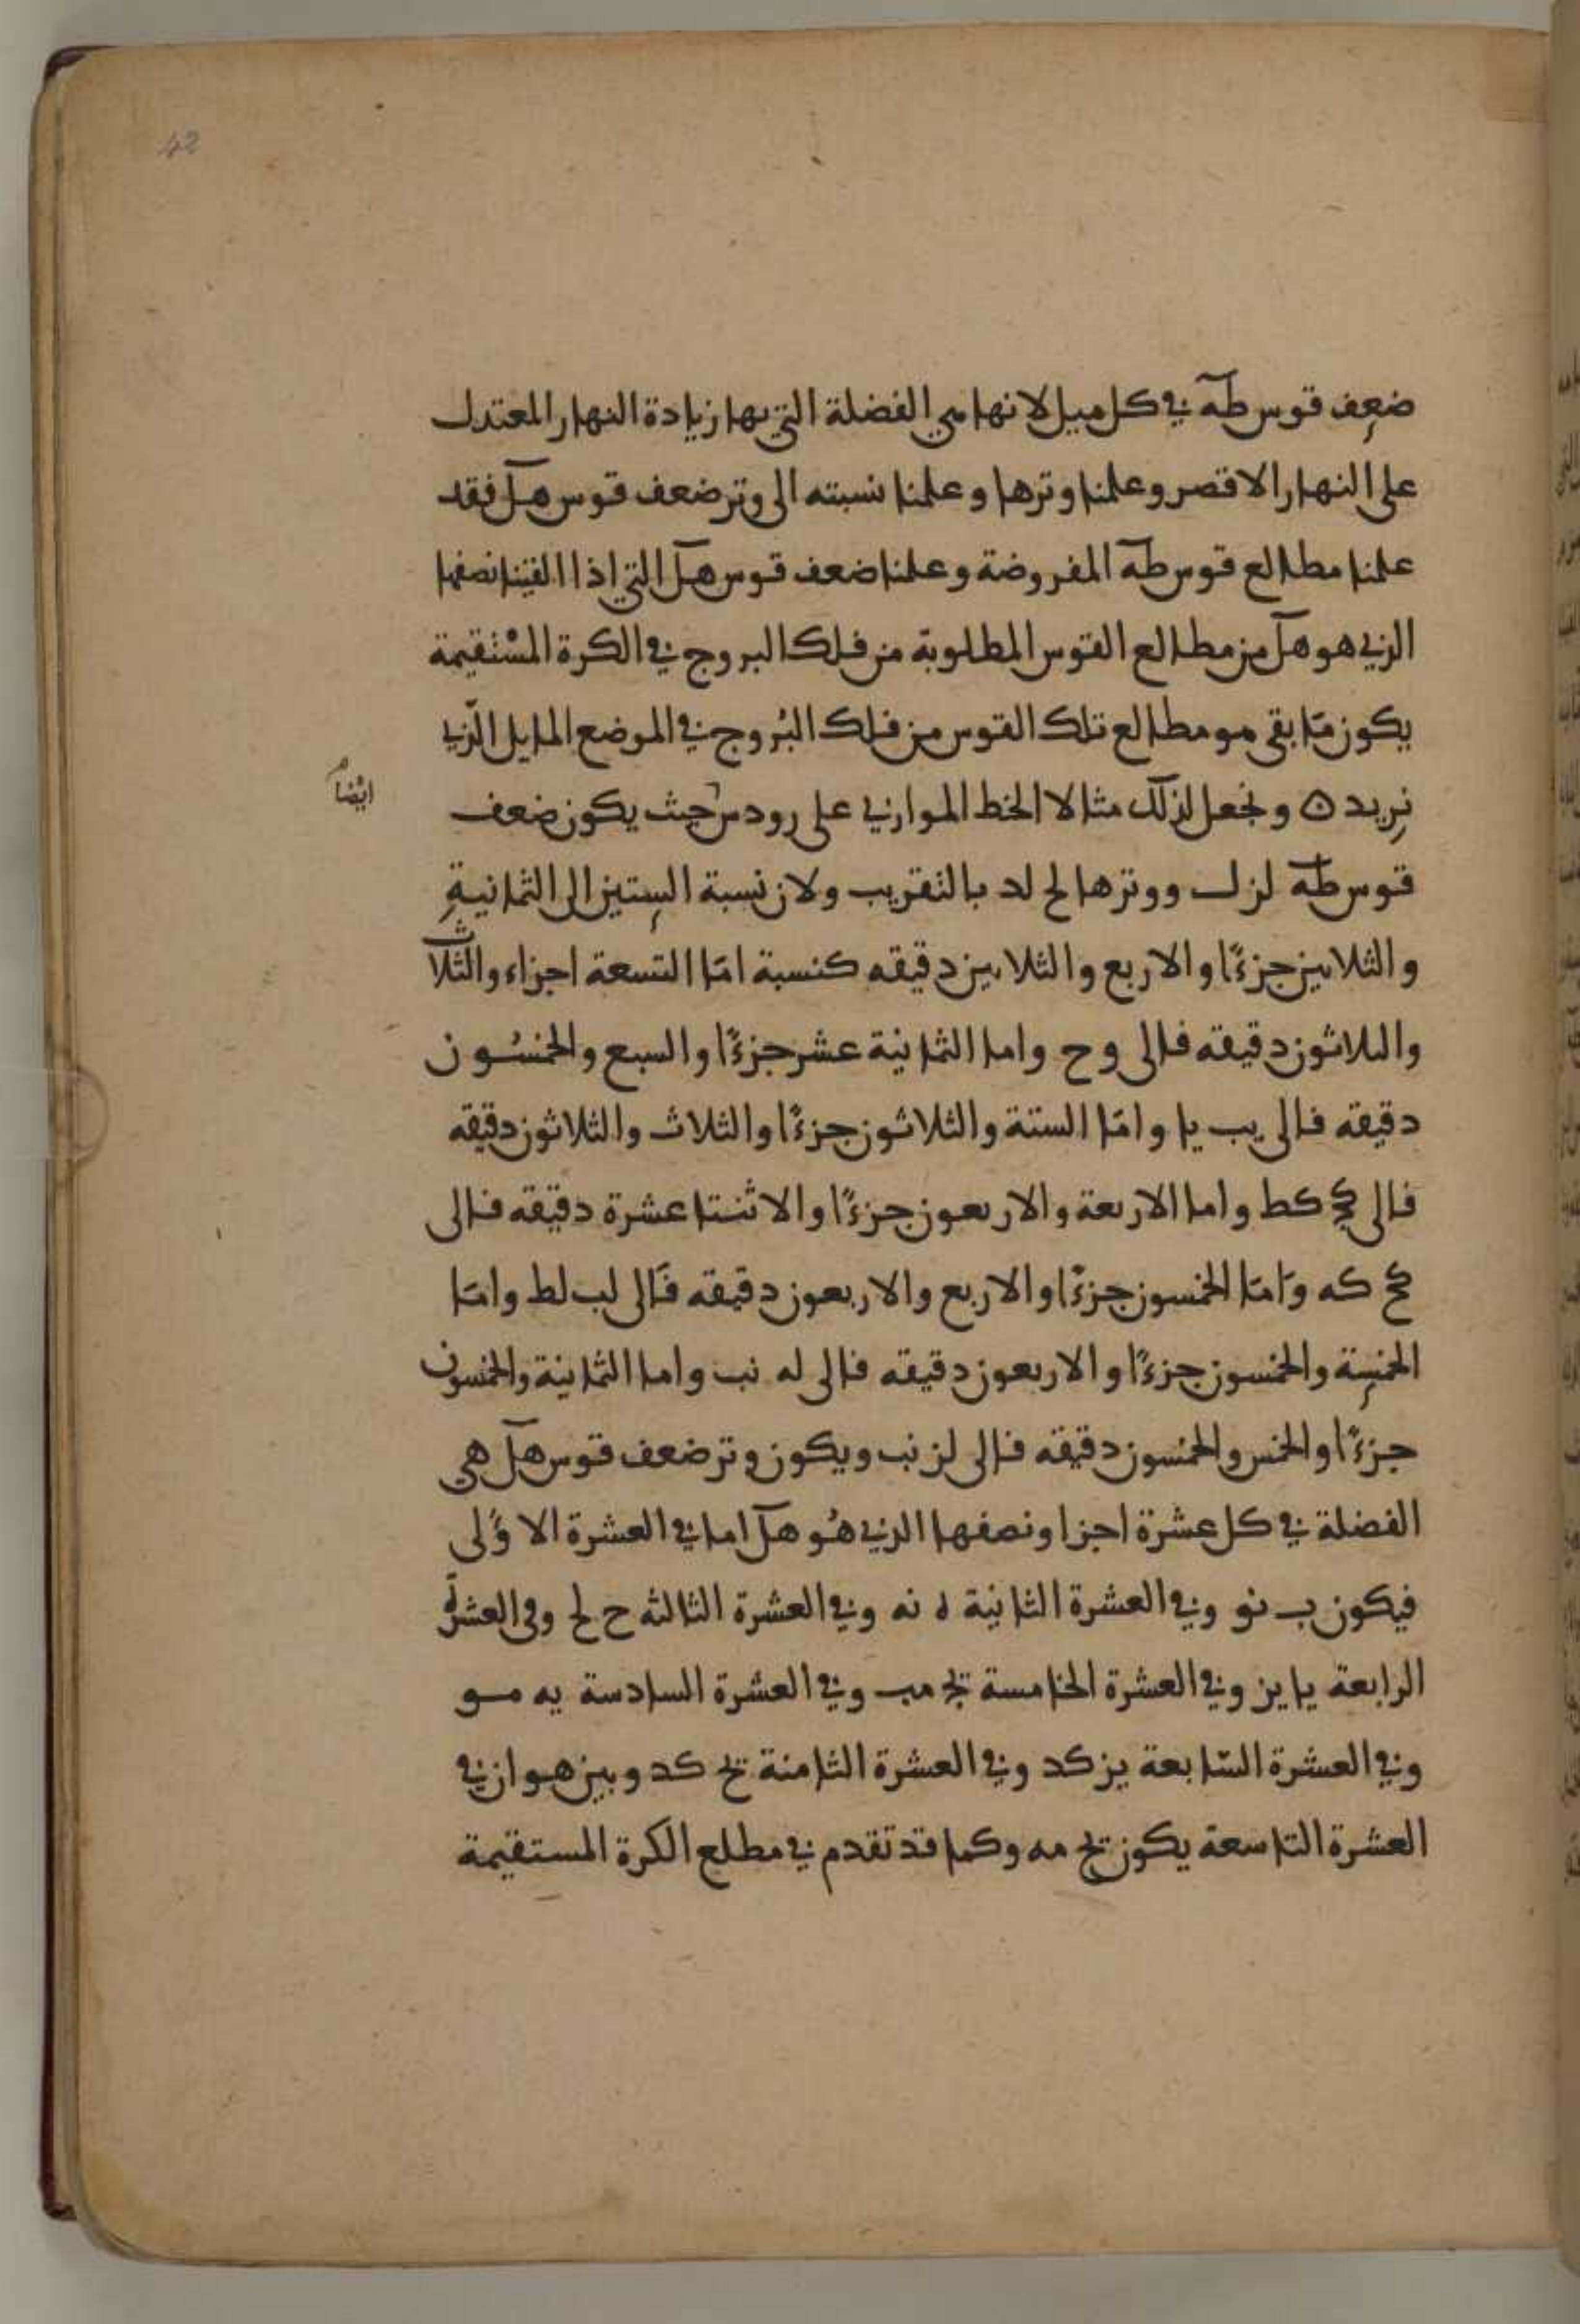 42
ضعف قوس طه في كل ميل لانها هي الفضلة التي بها زيادة النهار المعتدل
على النهار الاقصر وعلمنا وترها وعلمنا نسبته الى وتر ضعف قوس هل فقد
علمنا مطالع قوس طه المفروضة وعلمنا ضعف قوس هل التي اذا القينا نصفها
الذي هو هل من مطالع القوس المطلوبة من فلك البروج في الكرة المستقيمة
يكون مَا بقى هو مطالع تلك القوس من فلك البُروج في الموضع المايل الّذي
نريد ۞ ونجعل لذلك مثالا الخط الموازي على رودس حيث يكون ضعف
ايْضًا
قوس طه لز ل ووترها لح لد بالتقريب ولان نسبة الستين الى الثمانية
والثلاثين جزءًا والاربع والثلاثين دقيقه كنسبة امّا التسعة اجزاء والثلاث
والثلاثون دقيقه فالى و ح واما الثمانية عشر جزءًا والسبع والخمسُون
دقيقه فالى يب يا وامّا الستة والثلاثون جزءًا والثلاث والثلاثون دقيقه
فالى كج كط واما الاربعة والاربعون جزءًا والاثنتا عشرة دقيقه فالى
كح كه وَامّا الخمسون جزءًا والاربع والاربعون دقيقه فَالى لب لط وامّا
الخمسة والخمسون جزءًا والاربعون دقيقه فالى له نب واما الثمانية والخمسون
جزءًا والخمس والخمسون دقيقه فالى لز نب ويكون وتر ضعف قوس هل هي
الفضلة في كل عشرة اجزا ونصفها الذي هُو هل اما في العشرة الاوْلى
فيكون ب نو وفي العشرة الثانية ه نه وفي العشرة الثالثه ح لح وفى العشرة
الرابعة يا يز وفي العشرة الخامسة يج مب وفي العشرة السادسة يه مو
وفي العشرة السّابعة يز كد وفي العشرة الثامنة يح كد وبين هو ان في
العشرة التاسعة يكون يح مه وكما قد تقدم في مطلع الكرة المستقيمة